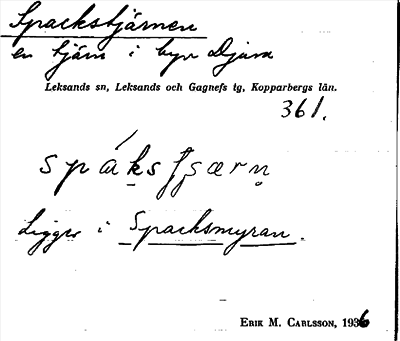 Spackstjärnen
en tjärn i byn Djura
Leksands sn, Leksands och Gagnefs tg, Kopparbergs län.
361.
Ligger i Spacksmyran.
ERIK M. CARLSSON, 1936